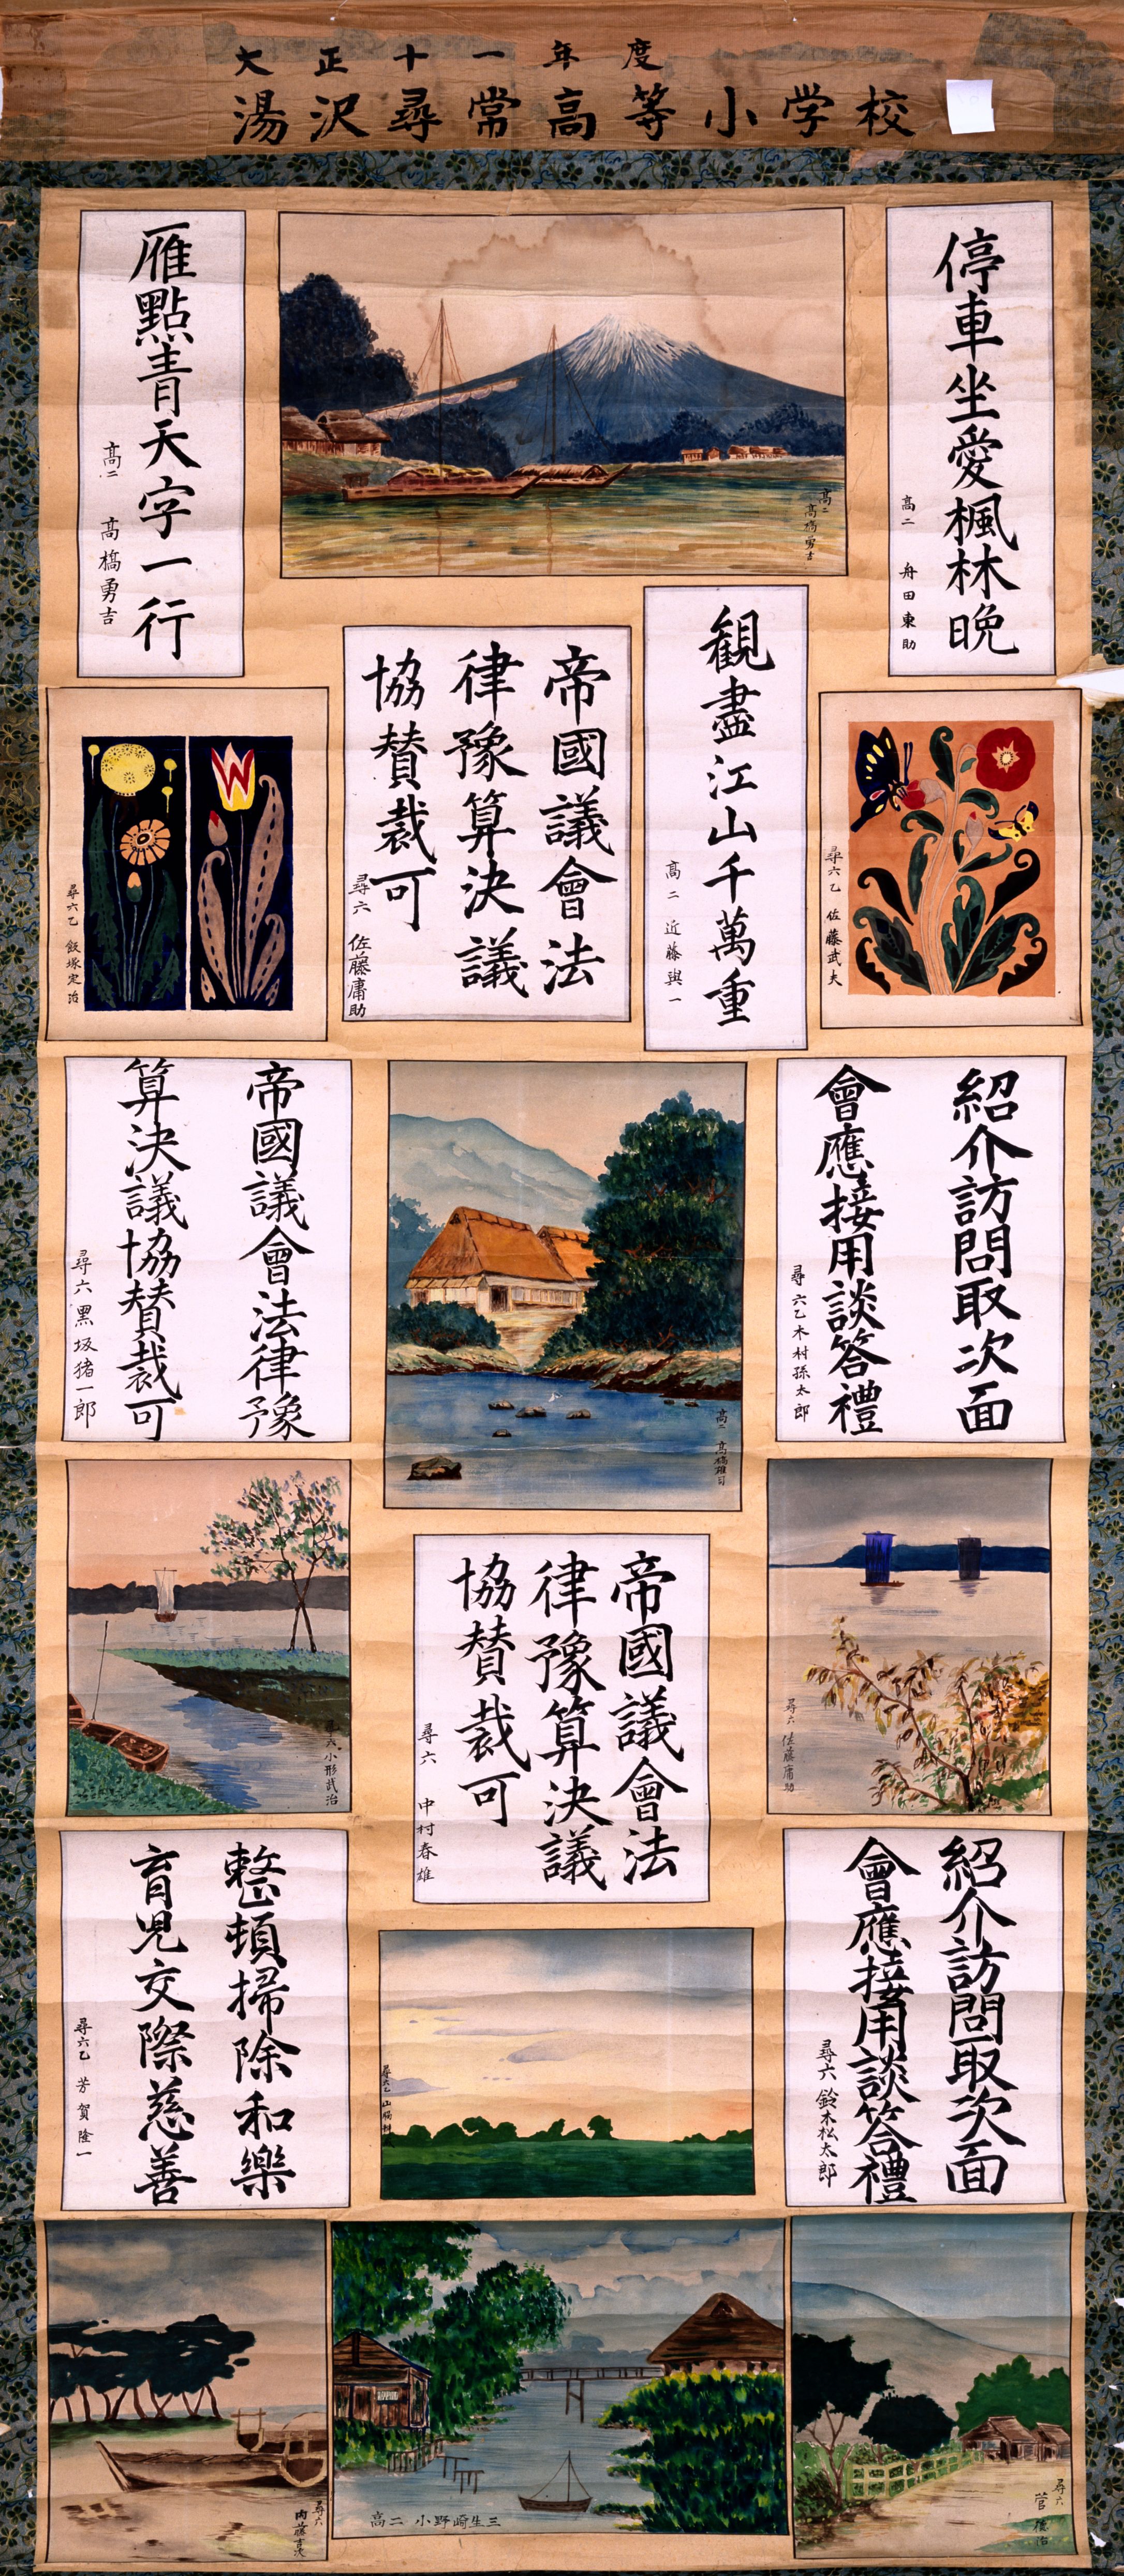 大正十一年度
湯沢尋常高等小学校
停車坐愛楓林晩
高二 舟田東助
高二
高橋勇吉
雁點青天字一行
高二 高橋勇吉
尋六乙 佐藤武夫
観盡江山千萬重
高二 近藤與一
帝國議會法
律豫算決議
協賛裁可
尋六 佐藤庸助
尋六乙 飯塚定治
紹介訪問取次面
會應接用談答禮
尋六乙木村孫太郎
高二 高橋雄司
帝國議會法律豫
算決議協賛裁可
尋六 黒坂猪一郎
尋六 佐藤庸助
帝國議會法
律豫算決議
協賛裁可
尋六 中村春雄
尋六 小形武治
紹介訪問取次面
會應接用談答禮
尋六 鈴木松太郎
尋六乙 山脇
整頓掃除和樂
育児交際慈善
尋六乙 芳賀隆一
尋六
菅 治
高二 小野崎生三
尋六
内藤吉次